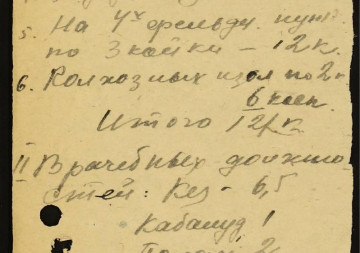 5. На 4х фельдш. пункт.
по 3 койки – 12 к.
6. Колхозных изол по 2
6 коек
Итого 121 к.
II Врачебных должно-
стей: Кез – 6,5
Кабалуд 1
2